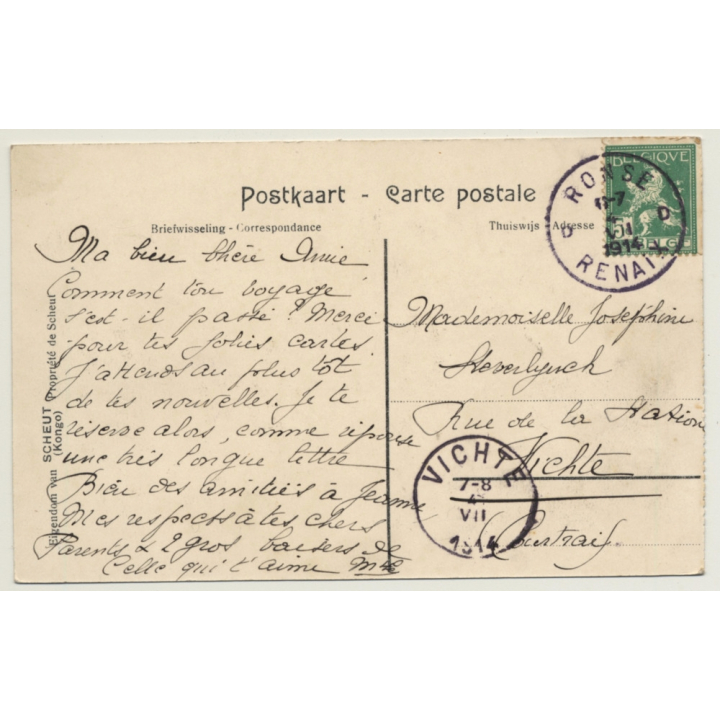 Postkaart - Carte postale
Briefwisseling - Correspondance
Thuiswijs - Adresse
BELGIQVE
5
RONSE
6-7
VII
1914
D D
RENAIX
Ma bien chère Amie
Comment ton voyage
s'est-il passé? Merci
pour tes jolies cartes.
J'attends au plus tôt
de tes nouvelles. Je te
réserve alors, comme réponse
une très longue lettre
Bien des amitiés à Jeanne
Mes respects à tes chers
Parents & 2 gros baisers de
Celle qui t'aime
Mademoiselle Joséphine
Rue de la Station
Vichte
(Courtrai)
VICHTE
7-8
4
VII
1914
Eigendom van SCHEUT Propriété de Scheut
(Kongo)